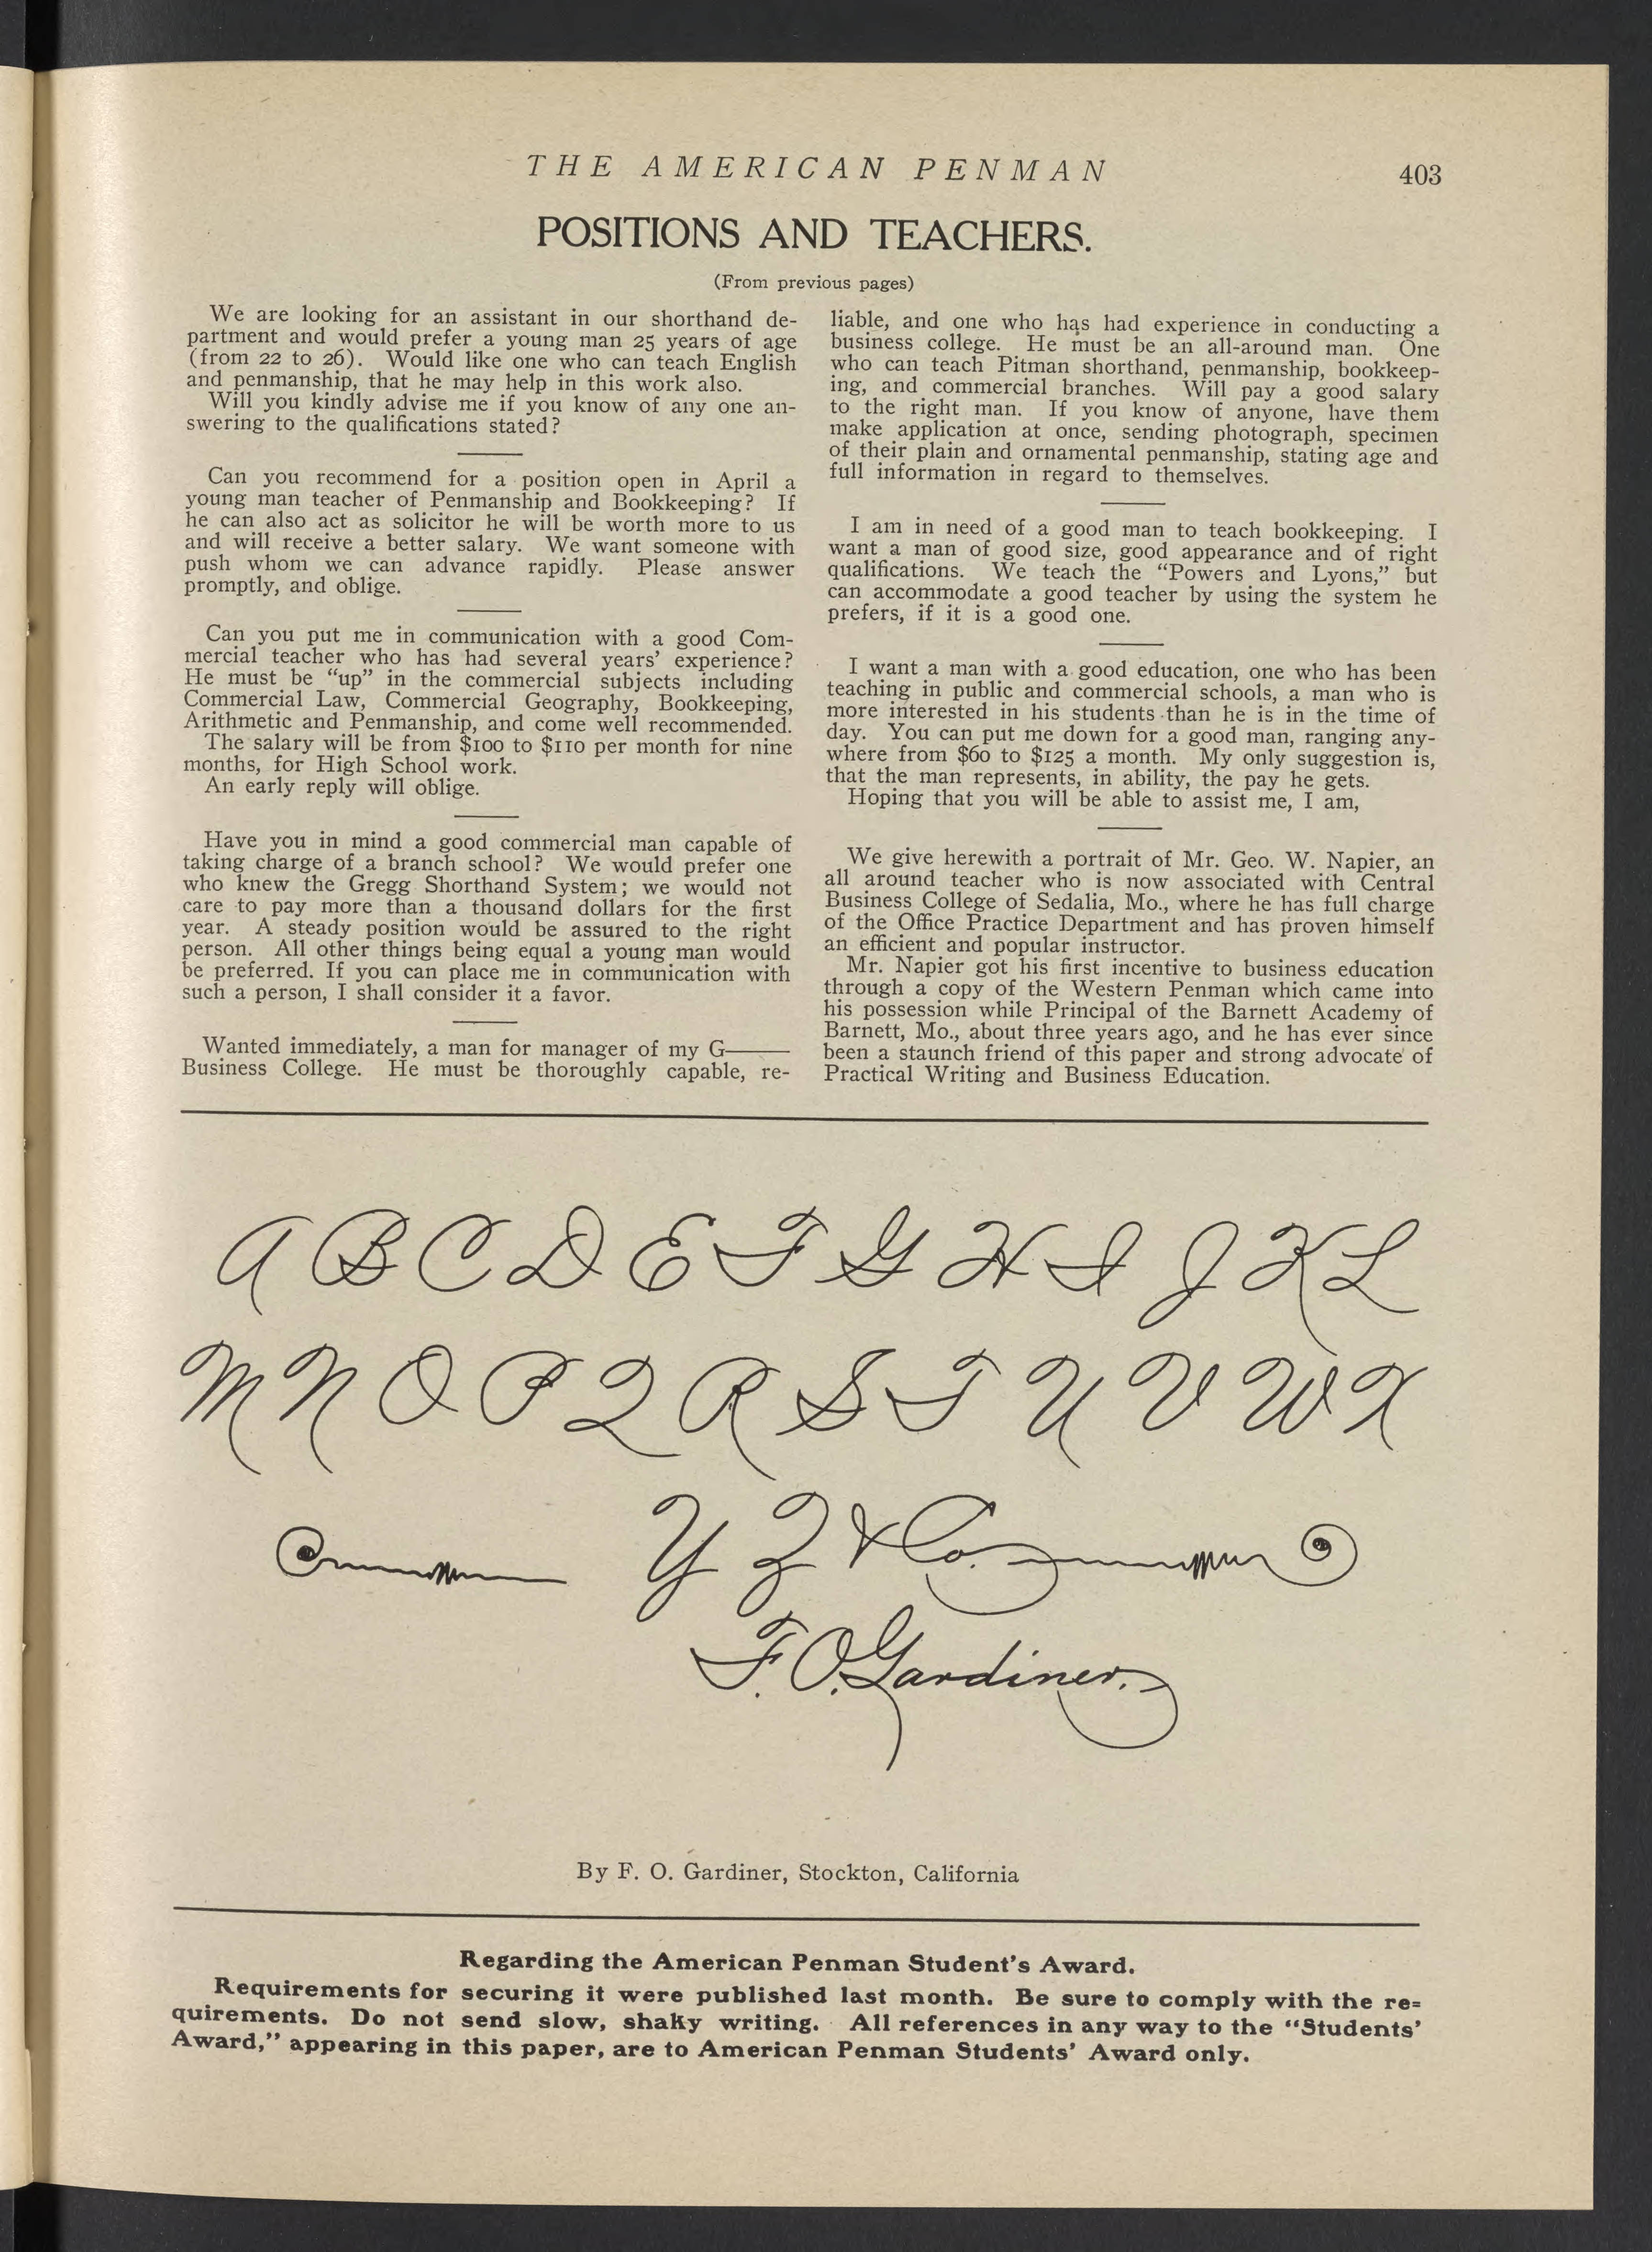 THE AMERICAN PENMAN
403
POSITIONS AND TEACHERS.
(From previous pages)
We are looking for an assistant in our shorthand de-
partment and would prefer a young man 25 years of age
(from 22 to 26). Would like one who can teach English
and penmanship, that he may help in this work also.
Will you kindly advise me if you know of any one an-
swering to the qualifications stated?
Can you recommend for a position open in April a
young man teacher of Penmanship and Bookkeeping? If
he can also act as solicitor he will be worth more to us
and will receive a better salary. We want someone with
push whom we can advance rapidly. Please answer
promptly, and oblige.
Can you put me in communication with a good Com-
mercial teacher who has had several years' experience?
He must be "up" in the commercial subjects including
Commercial Law, Commercial Geography, Bookkeeping,
Arithmetic and Penmanship, and come well recommended.
The salary will be from $100 to $110 per month for nine
months, for High School work.
An early reply will oblige.
Have you in mind a good commercial man capable of
taking charge of a branch school? We would prefer one
who knew the Gregg Shorthand System; we would not
care to pay more than a thousand dollars for the first
year. A steady position would be assured to the right
person. All other things being equal a young man would
be preferred. If you can place me in communication with
such a person, I shall consider it a favor.
Wanted immediately, a man for manager of my G——
Business College. He must be thoroughly capable, re-
liable, and one who has had experience in conducting a
business college. He must be an all-around man. One
who can teach Pitman shorthand, penmanship, bookkeep-
ing, and commercial branches. Will pay a good salary
to the right man. If you know of anyone, have them
make application at once, sending photograph, specimen
of their plain and ornamental penmanship, stating age and
full information in regard to themselves.
I am in need of a good man to teach bookkeeping. I
want a man of good size, good appearance and of right
qualifications. We teach the "Powers and Lyons," but
can accommodate a good teacher by using the system he
prefers, if it is a good one.
I want a man with a good education, one who has been
teaching in public and commercial schools, a man who is
more interested in his students than he is in the time of
day. You can put me down for a good man, ranging any-
where from $60 to $125 a month. My only suggestion is,
that the man represents, in ability, the pay he gets.
Hoping that you will be able to assist me, I am,
We give herewith a portrait of Mr. Geo. W. Napier, an
all around teacher who is now associated with Central
Business College of Sedalia, Mo., where he has full charge
of the Office Practice Department and has proven himself
an efficient and popular instructor.
Mr. Napier got his first incentive to business education
through a copy of the Western Penman which came into
his possession while Principal of the Barnett Academy of
Barnett, Mo., about three years ago, and he has ever since
been a staunch friend of this paper and strong advocate of
Practical Writing and Business Education.
A B C D E F G H I J K L
M N O P Q R S T U V W X
Y Z & Co.
F. O. Gardiner.
By F. O. Gardiner, Stockton, California
Regarding the American Penman Student's Award.
Requirements for securing it were published last month. Be sure to comply with the re=
quirements. Do not send slow, shaky writing. All references in any way to the "Students'
Award," appearing in this paper, are to American Penman Students' Award only.